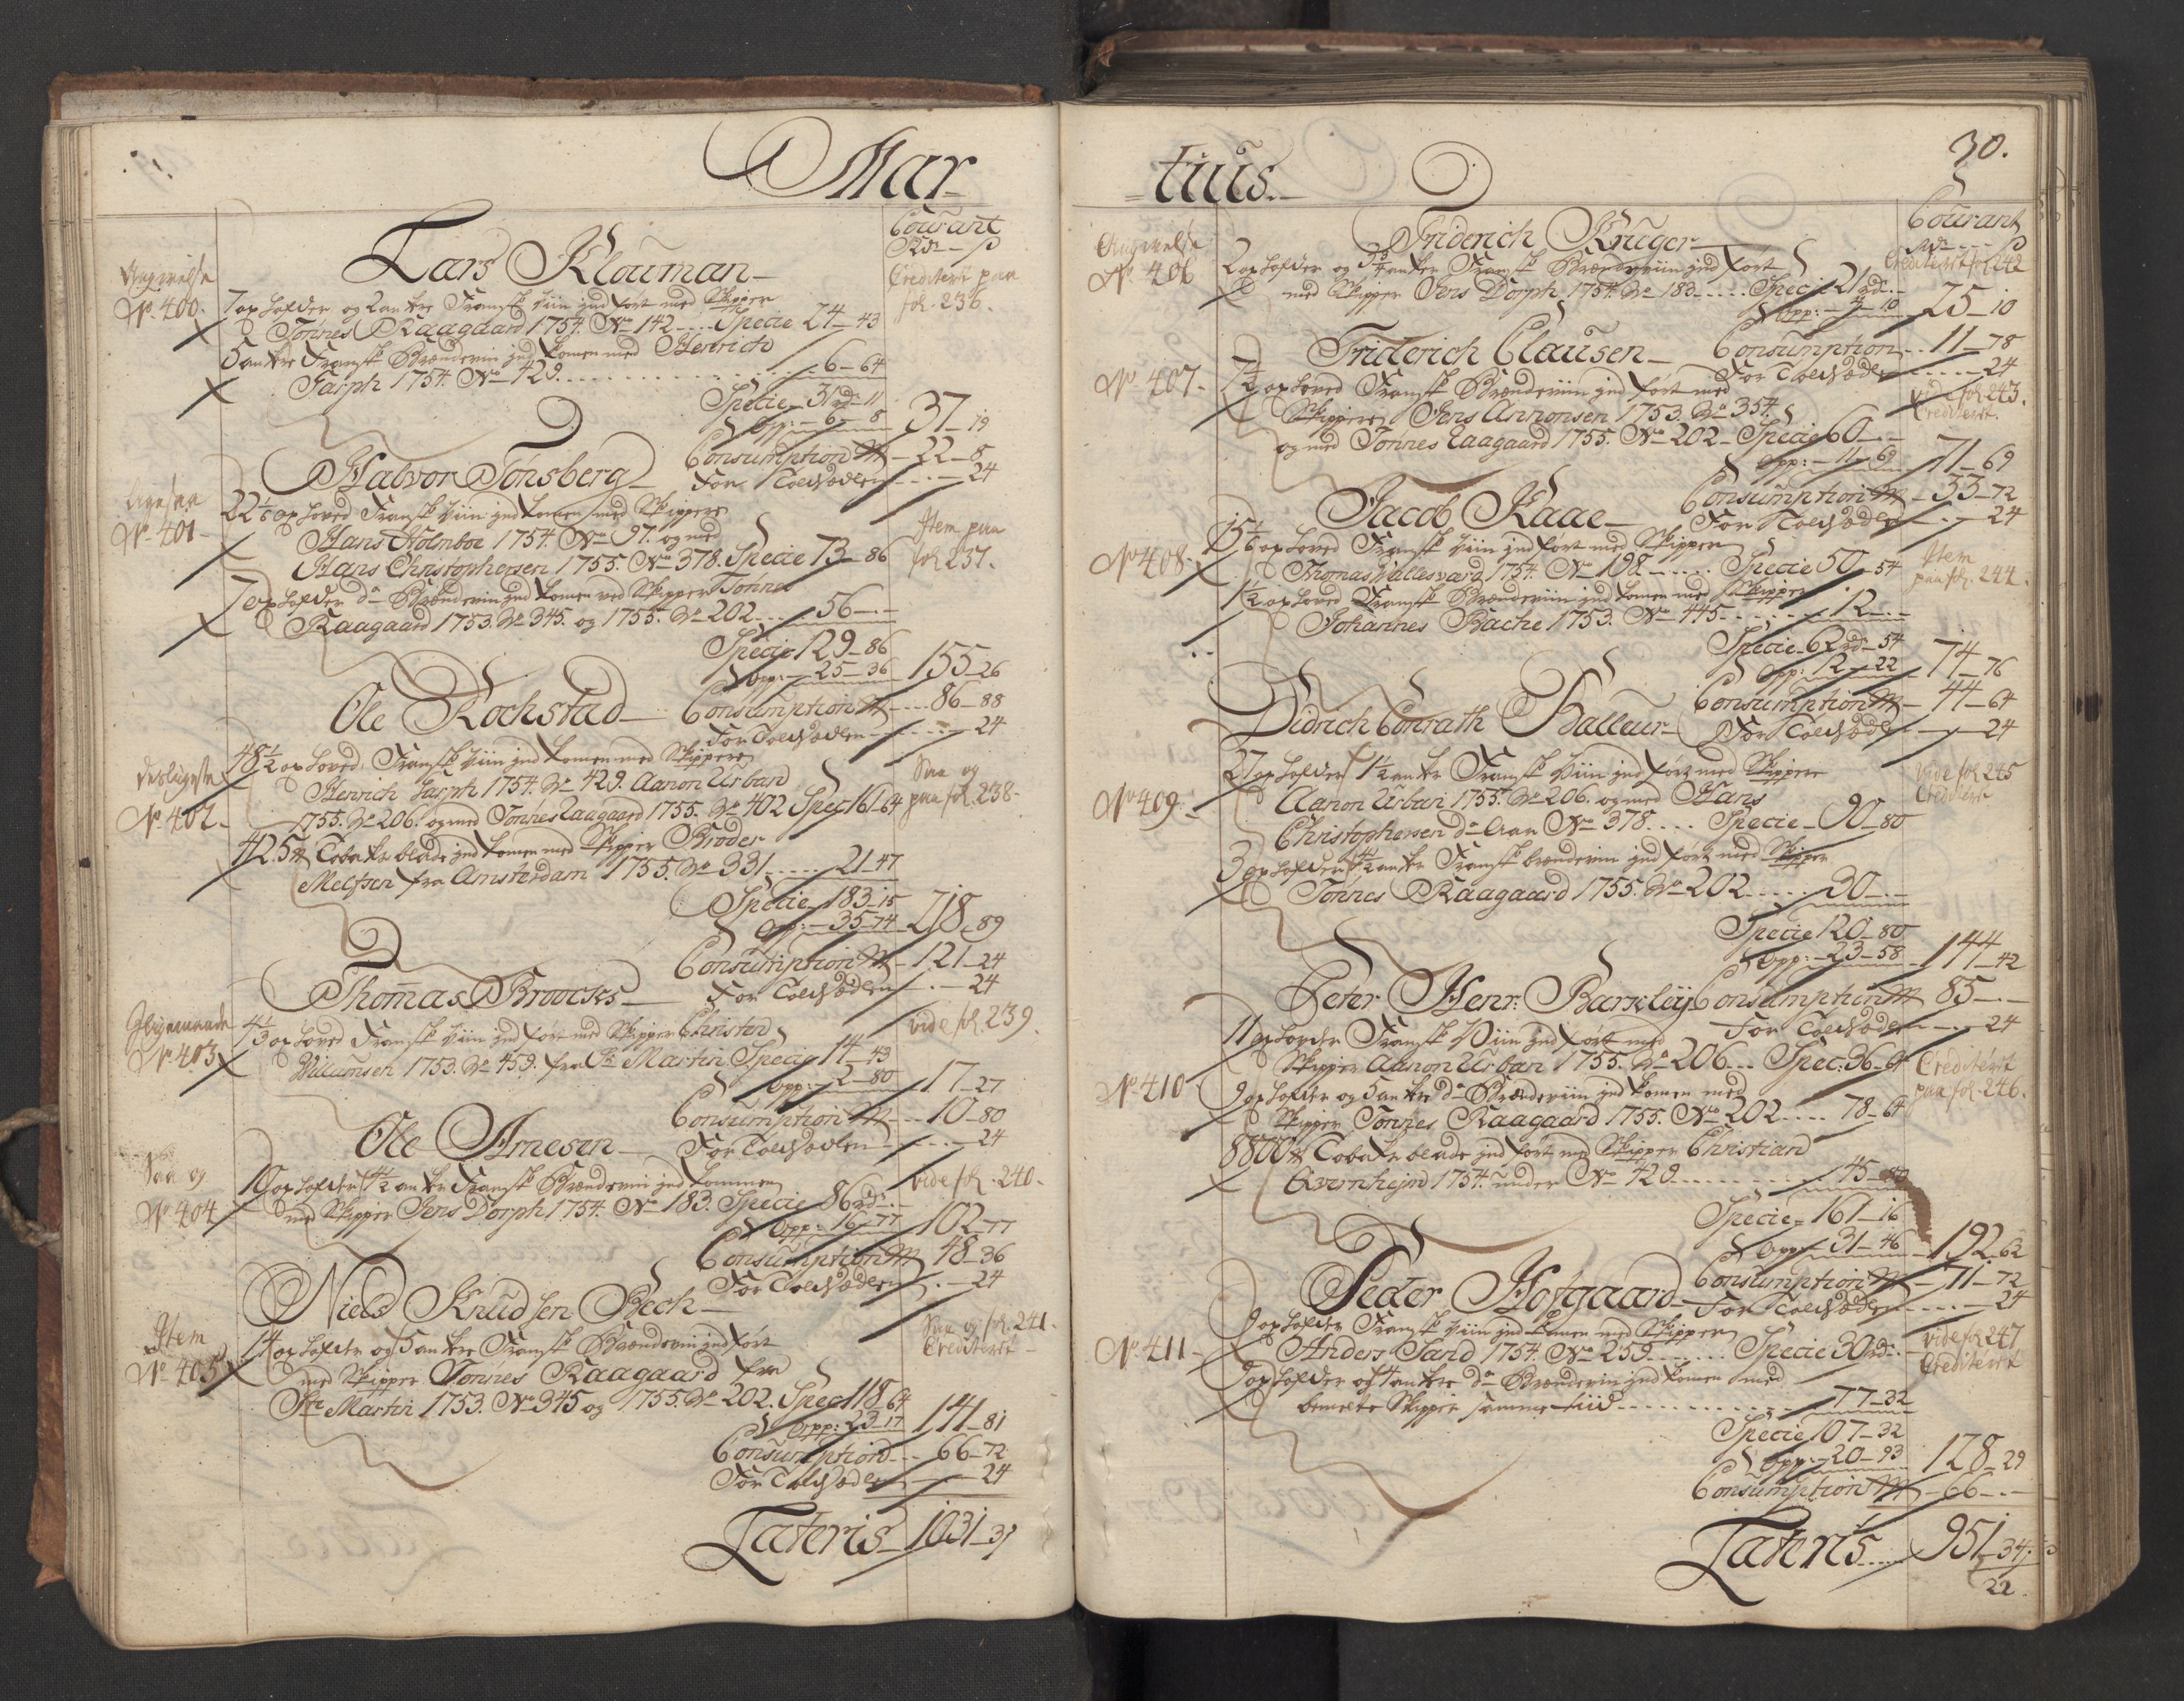 Mar
Courant
Rdr - s
Lars Klouman
Angivelse
No. 400.
7 oxhofder og 2 ankre Fransk Viin ind ført med Skipper
Tønnes Raagaard 1754. No 142 .... Specie 24-43
Crediteret paa
fol. 236.
5 ankre Fransk Brændeviin ind komen med Henrich
Jarph 1754. No 429 . . . . . . 6-64
Specie 31 rdr 11
Opp: - 6 - 8
37-19
Consumption - 22-8
For Toldsædlen - . - 24
Halvor Tønsberg
Ligesaa
No. 401
22 1/6 oxhoved Fransk Viin ind komen med Skippere
Hans Holmboe 1754. No 97. og med
Hans Christophersen 1755. No 378. Specie 73-86
Item paa
fol 237.
7 oxhofder do Brændeviin ind komen ved Skipper Tønnes
Raagaard 1753. No 345. og 1755. No 202 .... 56-.-
Specie 129-86
Opp: - 25-36
155-26
Consumption .... 86-88
For Toldsædlen - . - 24
Ole Rochstad
desligeste
No. 402.
48 1/2 oxhoved Fransk Viin ind komen med Skippere
Henrich Jarph 1754. No 429. Aanon Urban
1755. No 206. og med Tønnes Raagaard 1755. No 402 Spec 161-64
Saa og
paa fol. 238.
425 Tobaks blade ind komen med Skipper Broder
Melfsen fra Amsterdam 1755. No 331 ..... 21-47
Specie 183-15
Opp: - 35-74
218-89
Consumption - 121-24
For Toldsædlen - . - 24
Thomas Broocks
No. 403
4 1/3 oxhoved Fransk Viin ind ført med Skipper Christen
Willumsen 1753. No 459. fra St Martin Specie 14-43
vide fol. 239.
Opp: - 2-80
17-27
Consumption ... 10-80
For Toldsædlen - . - 24
Ole Arnesen
Saa og
No. 404
10 oxhofder 4 1/2 anker Fransk Brændeviin ind kommen
med Skipper Jens Dorph 1754. No 183. Specie 86 rdr
vide fol. 240.
Opp: - 16-77
102-77
Consumption 48-36
For Toldsædlen . - 24
Niels Knudsen Bech
Item
No. 405
14 oxhofder og 5 ankre Fransk Brændeviin ind ført
med Skipper Tønnes Raagaard fra
Saa og fol. 241.
Crediteret
St Martin 1753. No 345 og 1755. No 202. Spec 118-64
Opp: 23-17
141-81
Consumption ... 66-72
For Toldsædlen - . - 24
Lateris 1031-31
tius.
30.
Courant
Rdr - s
Friderich Krüger
Angivelse
No. 406
2 oxhofder og 3 3/4 anker Fransk Brændeviin ind ført
med Skipper Jens Dorph 1754. No 183 ..... Specie 21 rdr
Crediteret fol 242
Opp: - 4-10
25-10
Consumption .. 11-78
For Toldsædlen .... 24
Friderich Clausen
No. 407
7 1/2 oxhoved Fransk Brændeviin ind ført med
Skippere Jens Annonsen 1753. No 354.
og med Tønnes Raagaard 1755. No 202 - Specie 60 - . -
vide fol 243.
Crediteret.
Opp: - 11-69
71-69
Consumption - 53-72
For Toldsædlen - . - 24
Jacob Kaae
No 408
15 1/6 oxhoved Fransk Viin ind ført med Skipper
Thomas Wallesværd 1754. No 198 ..... Specie 50-54
Item
paa fol. 244.
1 1/2 oxhoved Fransk Brændeviin ind komen med Skipper
Johannes Bache 1753. No 445 ..... 12 - . -
Specie 62 rdr 54
Opp: 12-22
74-76
Consumption - 44-64
For Toldsædlen - . - 24
Didrich Conrath Balleur
No 409
27 oxhofder 1 1/2 anker Fransk Viin ind ført med Skippere
Aanon Urban 1755. No 206. og med Hans
Christophersen do Aar No 378 .... Specie - 90-80
vide fol 245
Crediteret
3 oxhofder 4 1/2 anker Fransk brændeviin ind ført med Skipper
Tønnes Raagaard 1755. No 202 ..... 30 - . -
Specie 120-80
Opp: - 23-58
144-42
Consumption 85 - . -
For Toldsædlen - . - 24
Peter Henr: Barkley
No 410
11 oxhofder Fransk Viin ind ført med
Skipper Aanon Urban 1755. No 206 ... Spec: 36-64
Crediteret
paa fol. 246.
9 oxhofder og 5 ankre do Brændeviin ind komen med
Skipper Tønnes Raagaard 1755. No 202 .... 78-64
8800 Tobaks blade ind ført med Skipper Christian
Qvernhejm 1754. under No 420 ....... 45-80
Specie - 161-16
Opp: - 31-46
192-62
Consumption - 71-72
For Toldsædlen .... - 24
Peder Hofgaard
No. 411
9 oxhofder Fransk Viin ind komen med Skipper
Anders Sand 1754. No 259 ...... Specie 30 rdr
vide fol 247
Crediteret
9 oxhofder og 4 ankre do Brændeviin ind komen med
bemelte Skipper samme tiid .......... 77-32
Specie 107-32
Opp: - 20-93
128-29
Consumption - 66 - . -
Lateris .... 951-34
22